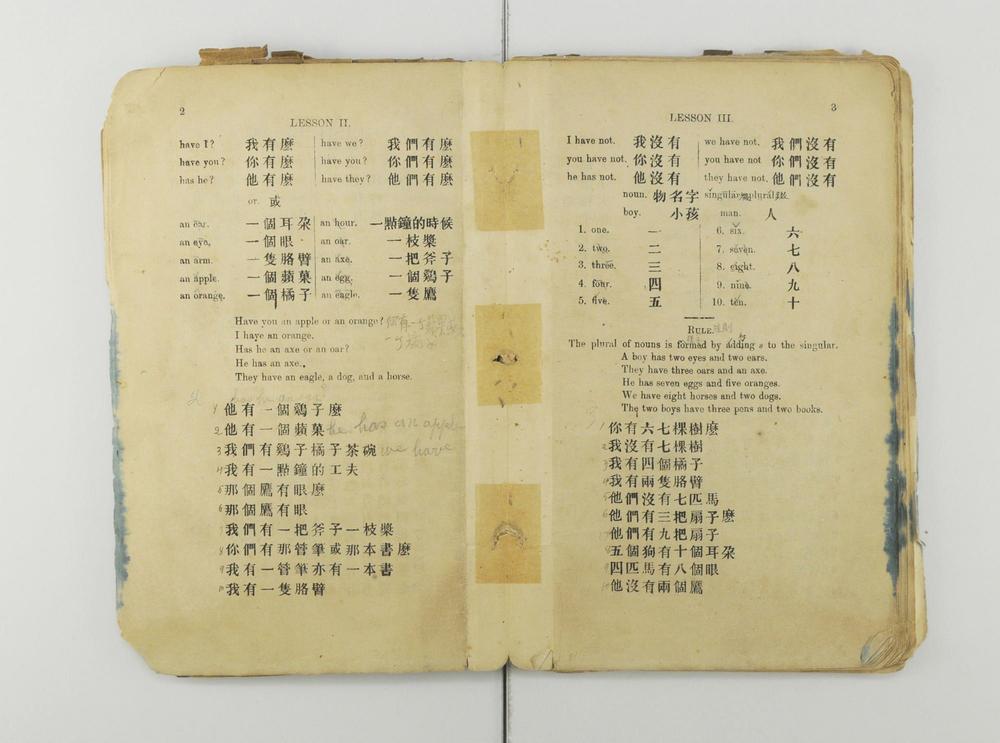 2
LESSON II.
have I? 我有麽 have we? 我們有麽
have you? 你有麽 have you? 你們有麽
has he? 他有麽 have they? 他們有麽
or. 或
an ear. 一個耳朶 an hour. 一點鐘的時候
an eye. 一個眼 an oar. 一枝槳
an arm. 一隻胳臂 an axe. 一把斧子
an apple. 一個蘋菓 an egg. 一個鷄子
an orange. 一個橘子 an eagle. 一隻鷹
Have you an apple or an orange?
I have an orange.
Has he an axe or an oar?
He has an axe.
They have an eagle, a dog, and a horse.
1 他有一個鷄子麽
2 他有一個蘋菓 he has an apple
3 我們有鷄子橘子茶碗 we have
4 我有一點鐘的工夫
5 那個鷹有眼麽
6 那個鷹有眼
7 我們有一把斧子一枝槳
8 你們有那管筆或那本書麽
9 我有一管筆亦有一本書
10 我有一隻胳臂
3
LESSON III.
I have not. 我沒有 we have not. 我們沒有
you have not. 你沒有 you have not 你們沒有
he has not. 他沒有 they have not. 他們沒有
noun. 物名字 singular, plural
boy. 小孩 man. 人
1. one. 一 6. six. 六
2. two. 二 7. seven. 七
3. three. 三 8. eight. 八
4. four. 四 9. nine. 九
5. five. 五 10. ten. 十
RULE.
The plural of nouns is formed by adding s to the singular.
A boy has two eyes and two ears.
They have three oars and an axe.
He has seven eggs and five oranges.
We have eight horses and two dogs.
The two boys have three pens and two books.
1 你有六七棵樹麽
2 我沒有七棵樹
3 我有四個橘子
4 我有兩隻胳臂
5 他們沒有七匹馬
6 他們有三把扇子麽
7 他們有九把扇子
8 五個狗有十個耳朶
9 四匹馬有八個眼
10 他沒有兩個鷹